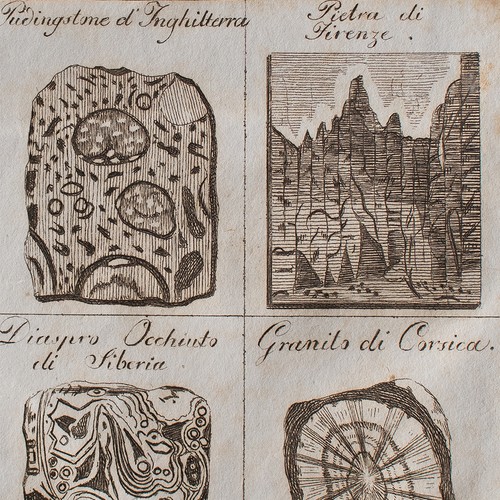 Pudingstone d'Inghilterra
Pietra di
Firenze.
Diaspro Occhiuto
di Siberia.
Granito di Corsica.